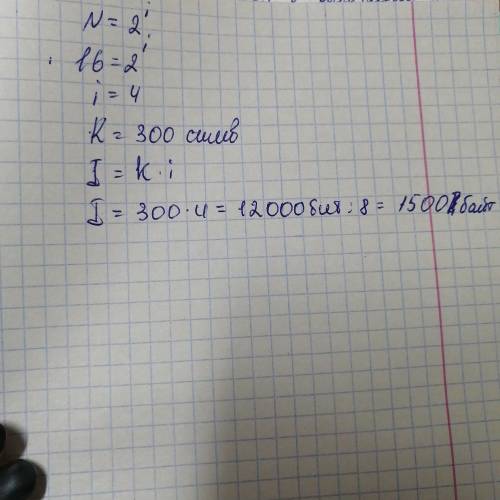 N = 2^i
16 = 2^i
i = 4
K = 300 симв
I = K · i
I = 300 · 4 = 12000бит : 8 = 1500 байт